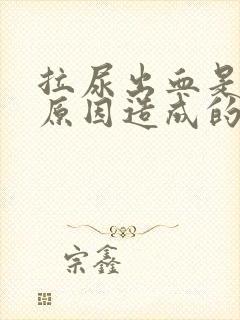 拉尿出血是
原因造成的
宗鑫